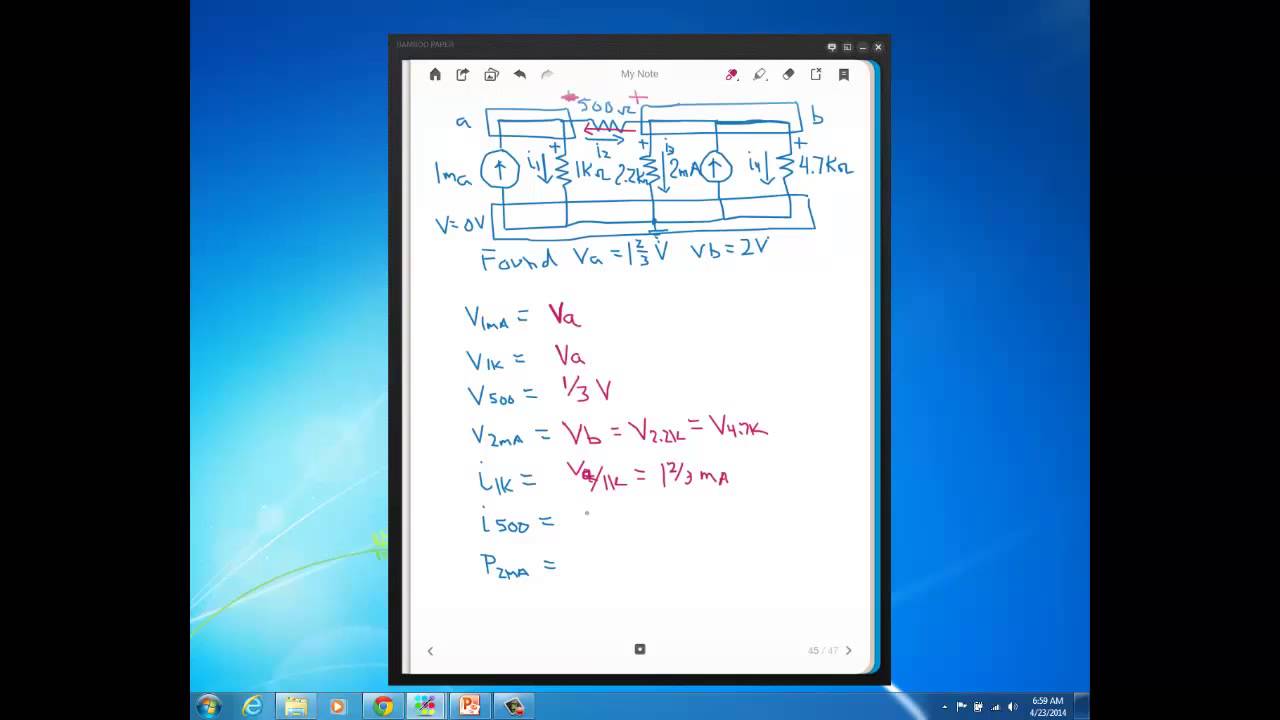 BAMBOO PAPER
My Note
+ 500Ω +
a b
+ i2 + i3 +
1ma i1 1KΩ 2.2K 2mA i4 4.7KΩ
V=0V
Found Va = 1 2/3 V Vb = 2V
V1mA = Va
V1K = Va
V500 = 1/3 V
V2mA = Vb = V2.2K = V4.7K
i1K = Va/1K = 1 2/3 mA
i500 =
P2mA =
45 / 47
6:59 AM
4/23/2014